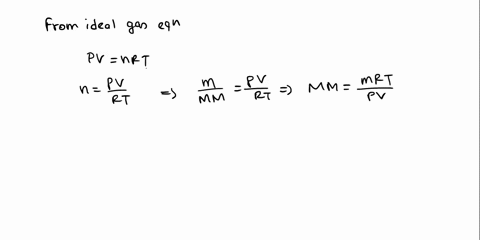 from ideal gas eqn
PV = nRT
n = PV/RT => m/MM = PV/RT => MM = mRT/PV